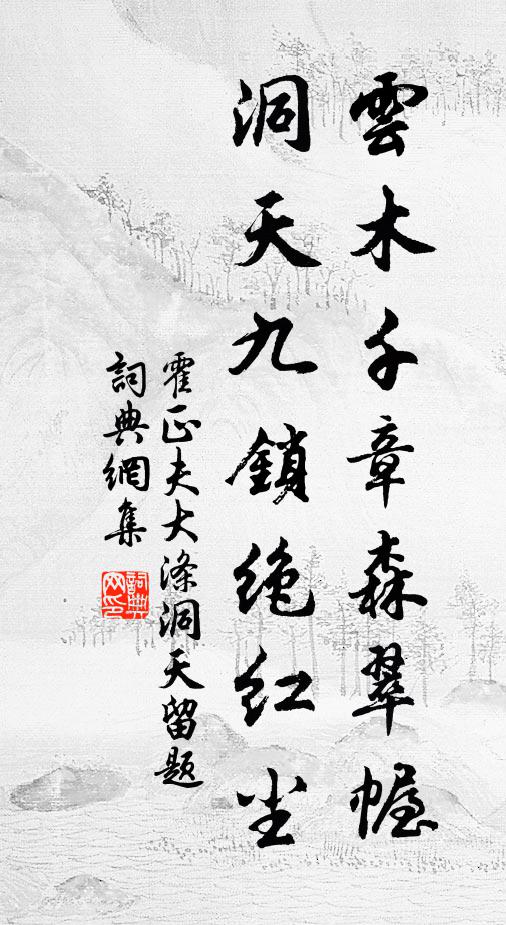 雲木千章森翠幄
洞天九鎖絶红尘
霍正夫大滌洞天留题
詞典網集
詞典网印